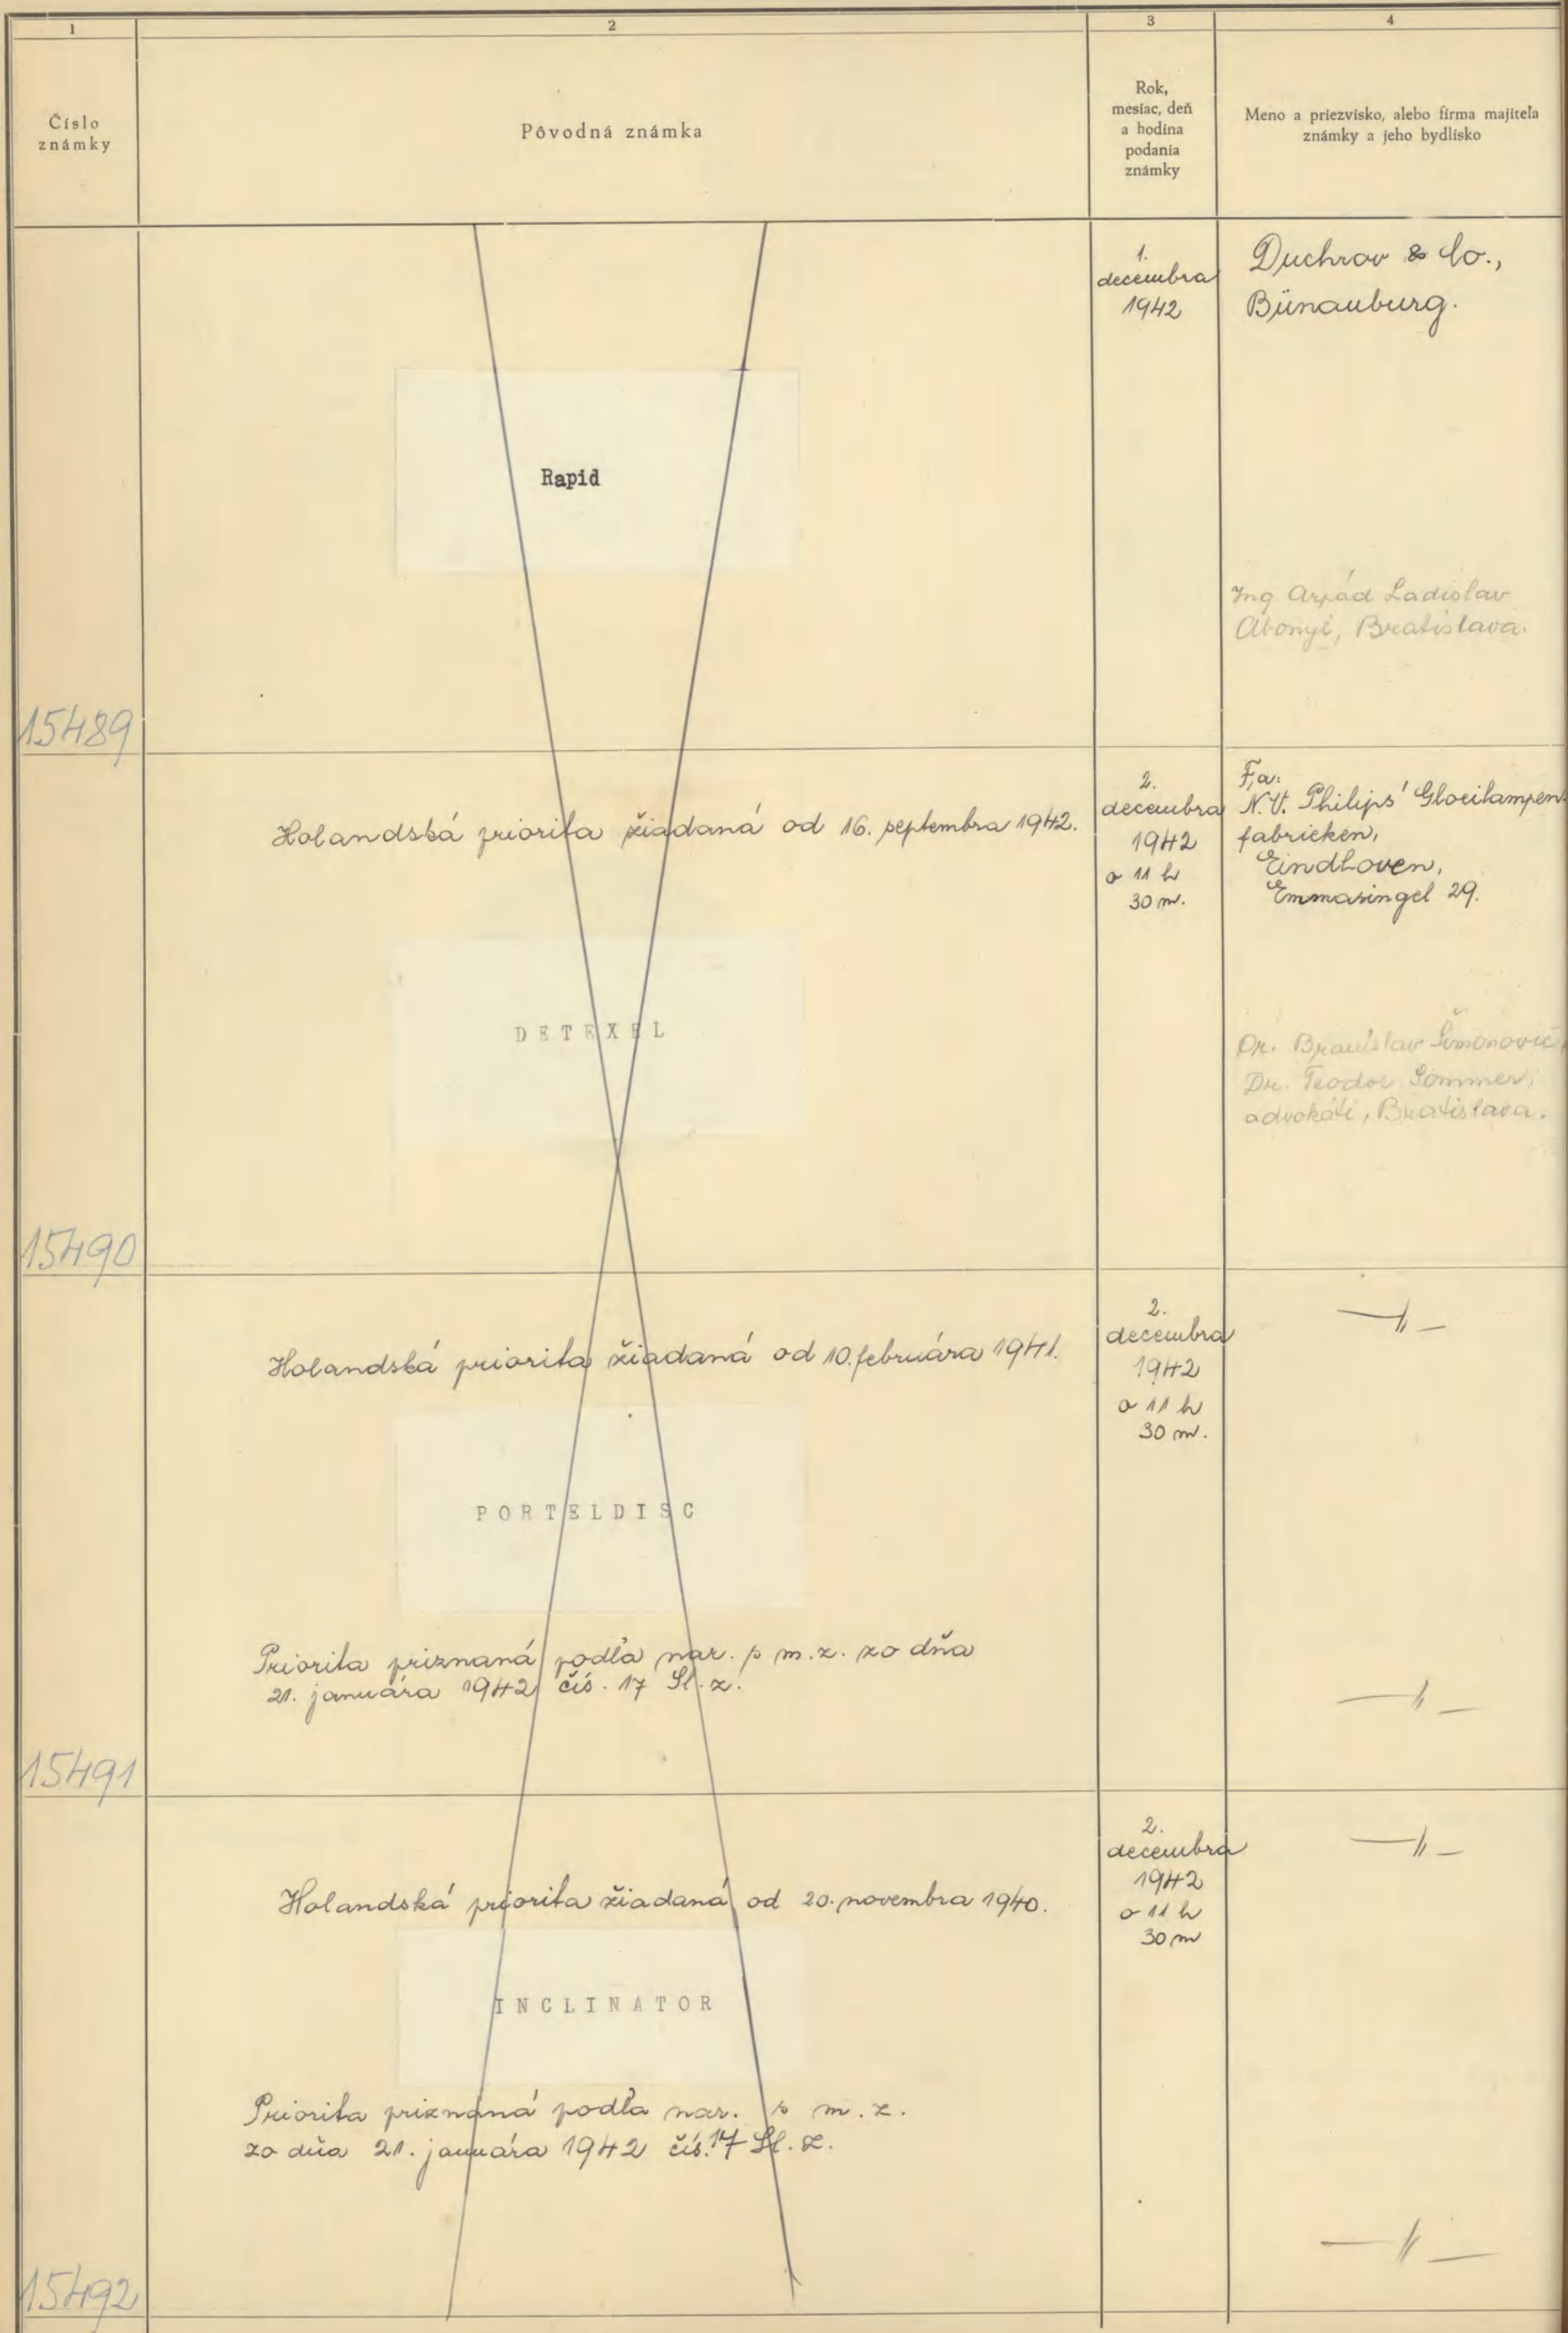 1
2
3
4
Číslo
známky
Pôvodná známka
Rok,
mesiac, deň
a hodina
podania
známky
Meno a priezvisko, alebo firma majiteľa
známky a jeho bydlisko
1.
decembra
1942
Duchrov & Co.,
Bünauburg.
Rapid
Ing. Arpád Ladislav
Abonyi, Bratislava.
15489
Holandská priorita žiadaná od 16. septembra 1942.
2.
decembra
1942
o 11 h
30 m.
Fa:
N.V. Philips' Gloeilampen-
fabrieken,
Eindhoven,
Emmasingel 29.
DETEXEL
Dr. Branislav Šimonovič,
Dr. Teodor Sommer,
advokáti, Bratislava.
15490
Holandská priorita žiadaná od 10. februára 1941.
2.
decembra
1942
o 11 h
30 m.
—〃—
PORTELDISC
Priorita priznaná podľa nar. s m. z. zo dňa
21. januára 1942 čís. 17 Sl. z.
—〃—
15491
Holandská priorita žiadaná od 20. novembra 1940.
2.
decembra
1942
o 11 h
30 m
—〃—
INCLINATOR
Priorita priznaná podľa nar. s m. z.
zo dňa 21. januára 1942 čís. 17 Sl. z.
—〃—
15492